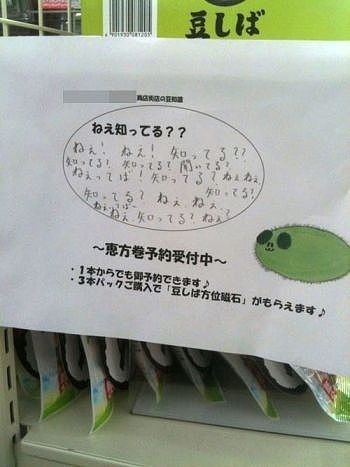 豆しば
商店街店の豆知識
ねえ知ってる??
ねぇ! ねぇ! 知ってる??
知ってる? 知ってる? 聞いてる?
ねぇってば! 知ってる? ねぇねぇ
知ってる? ねぇ ねぇ、 知ってる!
ねぇってばー
ねぇねぇ 知ってる? ねぇ?
~恵方巻予約受付中~
・1本からでも御予約できます♪
・3本パックご購入で「豆しば方位磁石」がもらえます♪